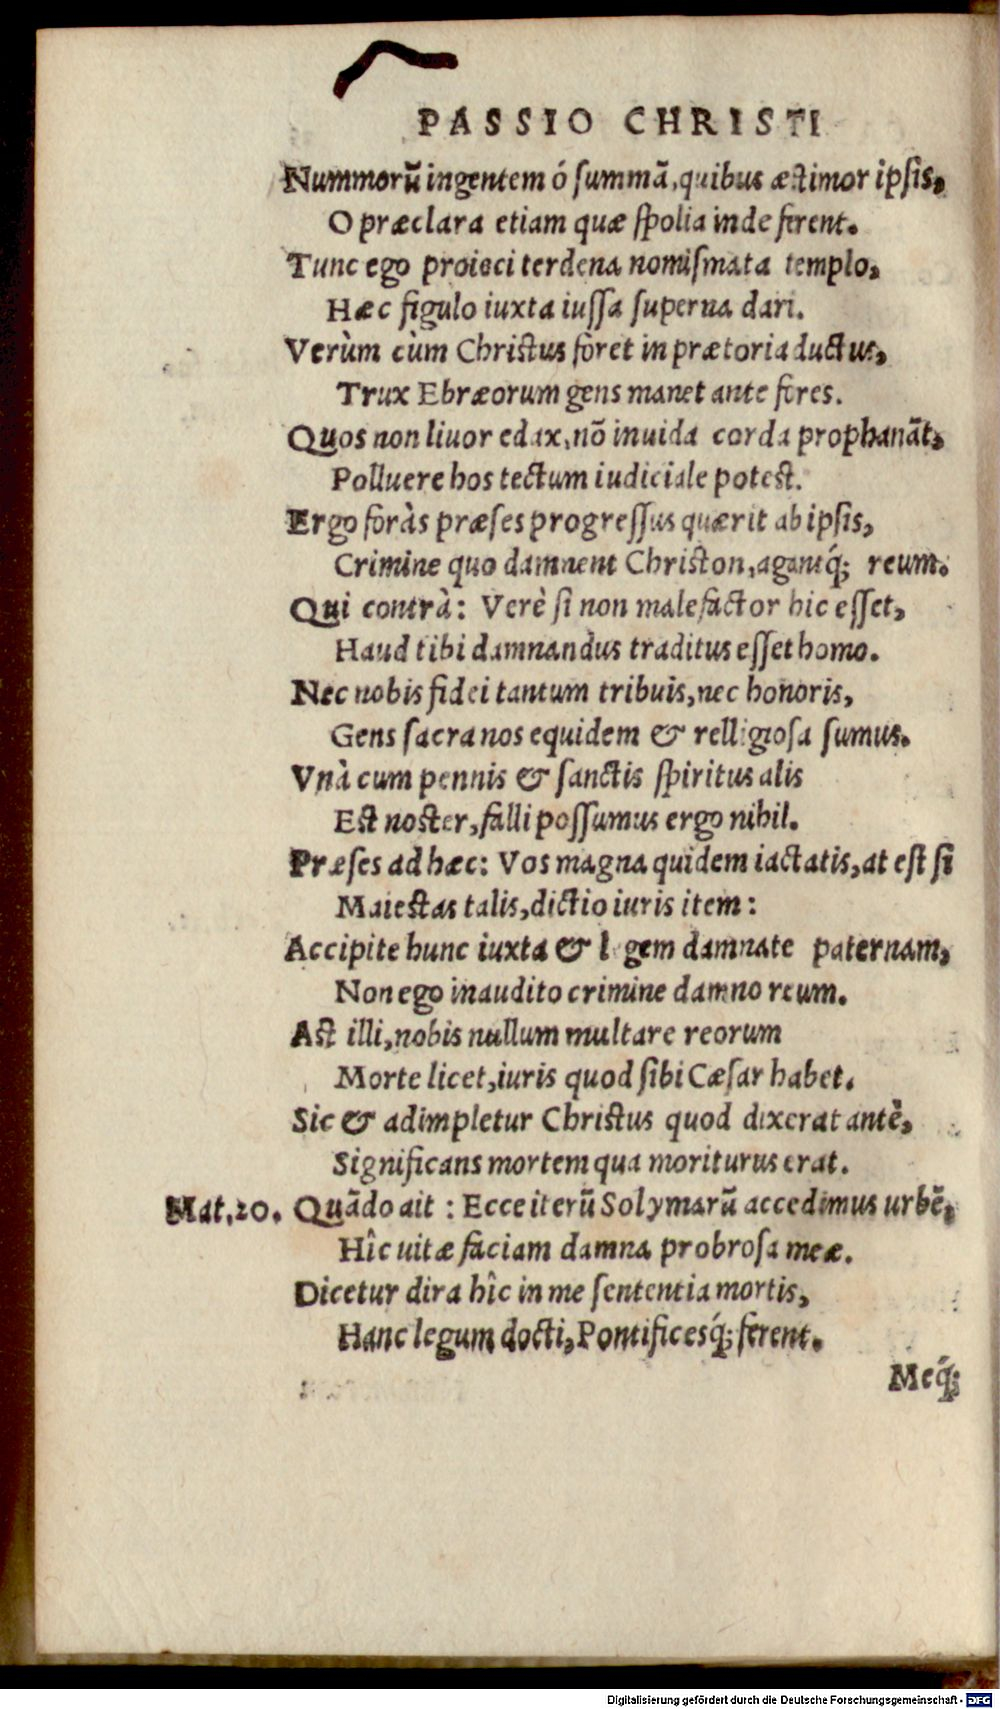 PASSIO CHRISTI
Nummorū ingentem ó ſummā, quibus æstimor ipſis,
O præclara etiam quæ ſpolia inde ferent.
Tunc ego proieci terdena nomiſmata templo,
Hæc figulo iuxta iuſſa ſuperna dari.
Verùm cùm Christus foret in prætoria ductus,
Trux Ebræorum gens manet ante fores.
Quos non liuor edax, nō inuida corda prophanāt,
Polluere hos tectum iudiciale potest.
Ergo foràs præſes progreſſus quærit ab ipſis,
Crimine quo damnent Christon, agantq́; reum.
Qui contrà: Verè ſi non malefactor hic eſſet,
Haud tibi damnandus traditus eſſet homo.
Nec nobis fidei tantum tribuis, nec honoris,
Gens ſacra nos equidem & relligioſa ſumus.
Vnà cum pennis & ſanctis ſpiritus alis
Est noster, falli poſſumus ergo nihil.
Præſes ad hæc: Vos magna quidem iactatis, at eſt ſi
Maiestas talis, dictio iuris item:
Accipite hunc iuxta & l gem damnate paternam,
Non ego inaudito crimine damno reum.
Ast illi, nobis nullum multare reorum
Morte licet, iuris quod ſibi Cæſar habet.
Sic & adimpletur Christus quod dixerat antè,
Significans mortem qua moriturus erat.
Mat. 20. Quādo ait : Ecce iterū Solymarū accedimus urbē,
Hîc uitæ faciam damna probroſa meæ.
Dicetur dira hîc in me ſententia mortis,
Hanc legum docti, Pontificesq́; ferent.
Meq́;
Digitalisierung gefördert durch die Deutsche Forschungsgemeinschaft - DFG